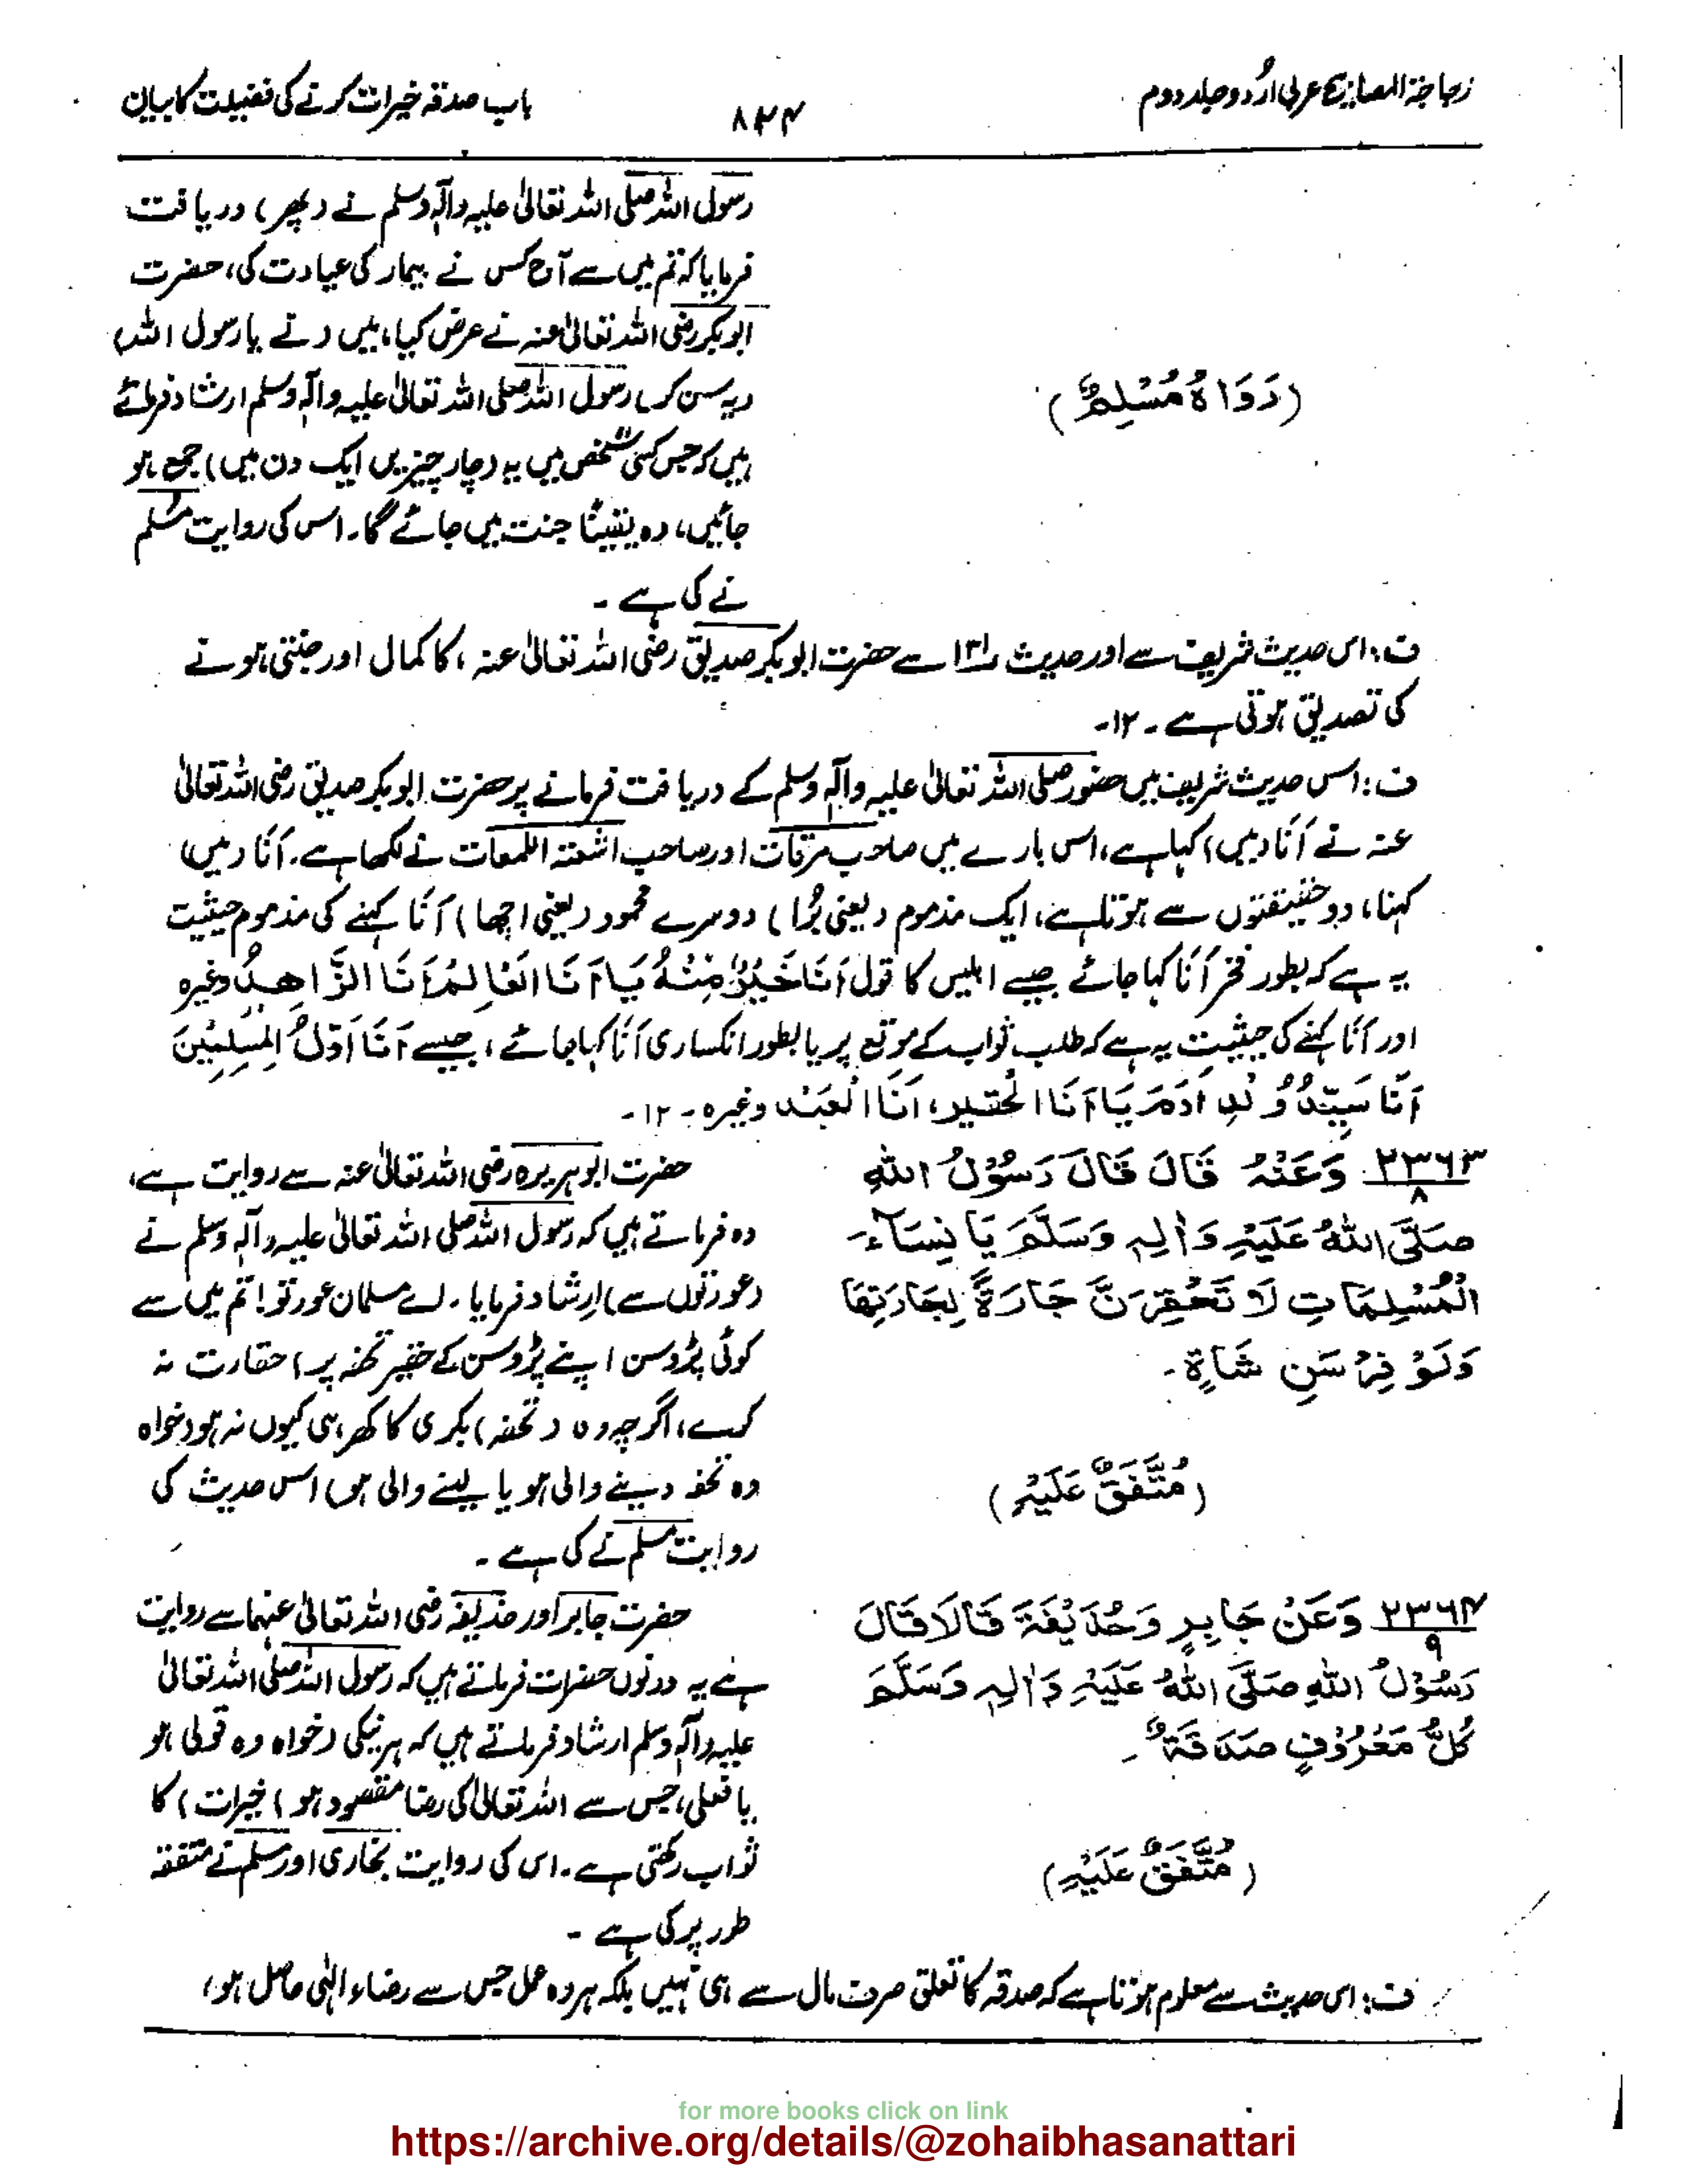 زجاجۃ المصابیح عربی اردو جلد دوم
۸۲۴
باب صدقہ خیرات کرنے کی فضیلت کا بیان
رسول اللہ صلی اللہ تعالیٰ علیہ وآلہٖ وسلم نے (پھر) دریافت
فرمایا کہ تم میں سے آج کس نے بیمار کی عیادت کی، حضرت
ابوبکر رضی اللہ تعالیٰ عنہ نے عرض کیا، میں نے یا رسول اللہ،
(یہ سن کر) رسول اللہ صلی اللہ تعالیٰ علیہ وآلہٖ وسلم ارشاد فرماتے
(رَوَاهُ مُسْلِمٌ)
ہیں کہ جس کسی شخص میں یہ (چار چیزیں ایک دن میں) جمع ہو
جائیں، وہ یقیناً جنت میں جائے گا۔ اس کی روایت مسلم
نے کی ہے ۔
ف:۔ اس حدیث شریف سے اور حدیث ۱۳۱ سے حضرت ابوبکر صدیق رضی اللہ تعالیٰ عنہ، کا کمال اور جنتی ہونے
کی تصدیق ہوتی ہے ۔ ۱۲۔
ف:۔ اس حدیث شریف میں حضور صلی اللہ تعالیٰ علیہ وآلہٖ وسلم کے دریافت فرمانے پر حضرت ابوبکر صدیق رضی اللہ تعالیٰ
عنہ نے اَنَا (میں) کہا ہے، اس بارے میں صاحب مرقات اور صاحب اشعۃ اللمعات نے لکھا ہے۔ اَنَا (میں)
کہنا، دو حقیقتوں سے ہوتا ہے، ایک مذموم (یعنی بُرا) دوسرے محمود (یعنی اچھا) اَنَا کہنے کی مذموم حیثیت
یہ ہے کہ بطور فخر اَنَا کہا جائے جیسے ابلیس کا قول اَنَا خَيْرٌ مِّنْهُ يَا اَنَا الْعَالِمُ اَنَا الزَّاهِدُ وغیرہ
اور اَنَا کہنے کی حیثیت یہ ہے کہ طلب ثواب کے موقع پر یا بطور انکساری اَنَا کہا جائے، جیسے اَنَا اَوَّلُ الْمُسْلِمِيْنَ
اَنَا سَيِّدُ وُلْدِ اٰدَمَ يَا اَنَا الْحَقِيْر، اَنَا الْعَبْد وغیرہ ۔ ۱۲ ۔
۲۳۶۳/۸ وَعَنْهُ قَالَ قَالَ رَسُوْلُ اللهِ
صَلَّى اللهُ عَلَيْهِ وَاٰلِهٖ وَسَلَّمَ يَا نِسَآءَ
الْمُسْلِمَاتِ لَا تَحْقِرَنَّ جَارَةٌ لِجَارَتِهَا
وَلَوْ فِرْسَنِ شَاةٍ ۔
(مُتَّفَقٌ عَلَيْهِ)
حضرت ابوہریرہ رضی اللہ تعالیٰ عنہ سے روایت ہے،
وہ فرماتے ہیں کہ رسول اللہ صلی اللہ تعالیٰ علیہ وآلہٖ وسلم نے
(عورتوں سے) ارشاد فرمایا۔ اے مسلمان عورتو! تم میں سے
کوئی پڑوسن اپنے پڑوسن کے حقیر تحفہ پر) حقارت نہ
کرے، اگرچہ وہ (تحفہ) بکری کا کھر ہی کیوں نہ ہو (خواہ
وہ تحفہ دینے والی ہو یا لینے والی ہو) اس حدیث کی
روایت مسلم نے کی ہے ۔
۲۳۶۴/۹ وَعَنْ جَابِرٍ وَحُذَيْفَةَ قَالَا قَالَ
رَسُوْلُ اللهِ صَلَّى اللهُ عَلَيْهِ وَاٰلِهٖ وَسَلَّمَ
كُلُّ مَعْرُوْفٍ صَدَقَةٌ ۔
(مُتَّفَقٌ عَلَيْهِ)
حضرت جابر اور حذیفہ رضی اللہ تعالیٰ عنہما سے روایت
ہے یہ دونوں حضرات فرماتے ہیں کہ رسول اللہ صلی اللہ تعالیٰ
علیہ وآلہٖ وسلم ارشاد فرماتے ہیں کہ ہر نیکی (خواہ وہ قولی ہو
یا فعلی، جس سے اللہ تعالیٰ کی رضا مقصود ہو) خیرات) کا
ثواب رکھتی ہے۔ اس کی روایت بخاری اور مسلم نے متفقہ
طور پر کی ہے ۔
ف:۔ اس حدیث سے معلوم ہوتا ہے کہ صدقہ کا تعلق صرف مال سے ہی نہیں بلکہ ہر وہ عمل جس سے رضاء الٰہی حاصل ہو،
for more books click on link
https://archive.org/details/@zohaibhasanattari